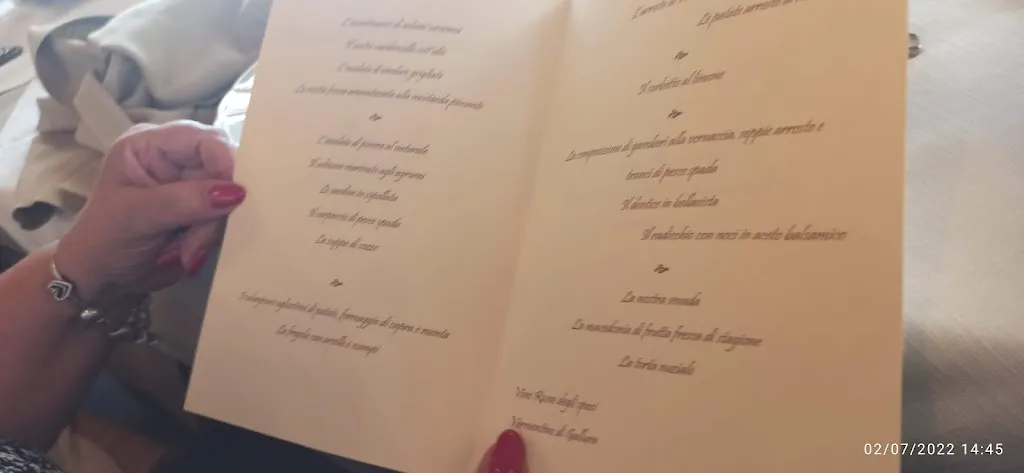 L'assortimento di salumi
Il misto carciofini sott'olio
L'insalata di verdure grigliate
La ricotta fresca aromatizzata alla mostarda piccante
L'insalata di piovra al naturale
Il salmone marinato agli agrumi
Le sardine in cipollata
Il carpaccio di pesce spada
La zuppa di cozze
I culurgiones ogliastrini di patate, formaggio di capra e menta
La fregola con arselle e scampi
L'arrosto di
Le patate arrosto
Il sorbetto al limone
La composizione di gamberi alla vernaccia, seppie arrosto e
tranci di pesce spada
Il dentice in bellavista
Il radicchio con noci in aceto balsamico
La nostra seada
La macedonia di frutta fresca di stagione
La torta nuziale
Vino Rosso degli sposi
Vermentino di Gallura
02/07/2022 14:45